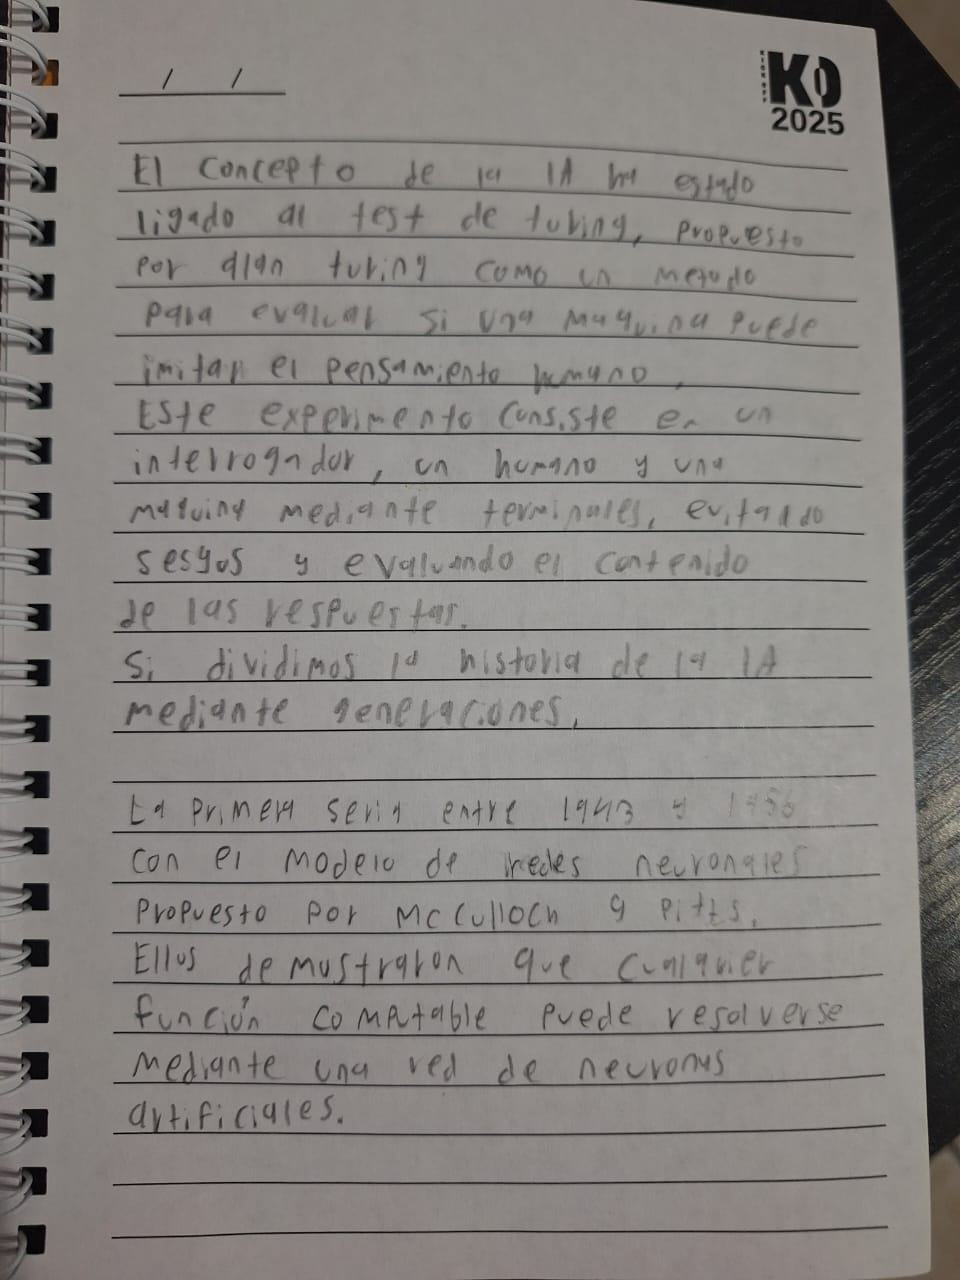 / /
KICK OFF
KO
2025
El concepto de la IA ha estado
ligado al test de turing, propuesto
por alan turing como un metodo
para evaluar si una maquina puede
imitar el pensamiento humano.
Este experimento consiste en un
interrogador, un humano y una
maquina mediante terminales, evitado
sesgos y evaluando el contenido
de las respuestas.
Si dividimos la historia de la IA
mediante generaciones,
La primera seria entre 1943 y 1956
con el modelo de redes neuronales
propuesto por McCulloch y Pitts.
Ellos demostraron que cualquier
función computable puede resolverse
mediante una red de neuronas
artificiales.